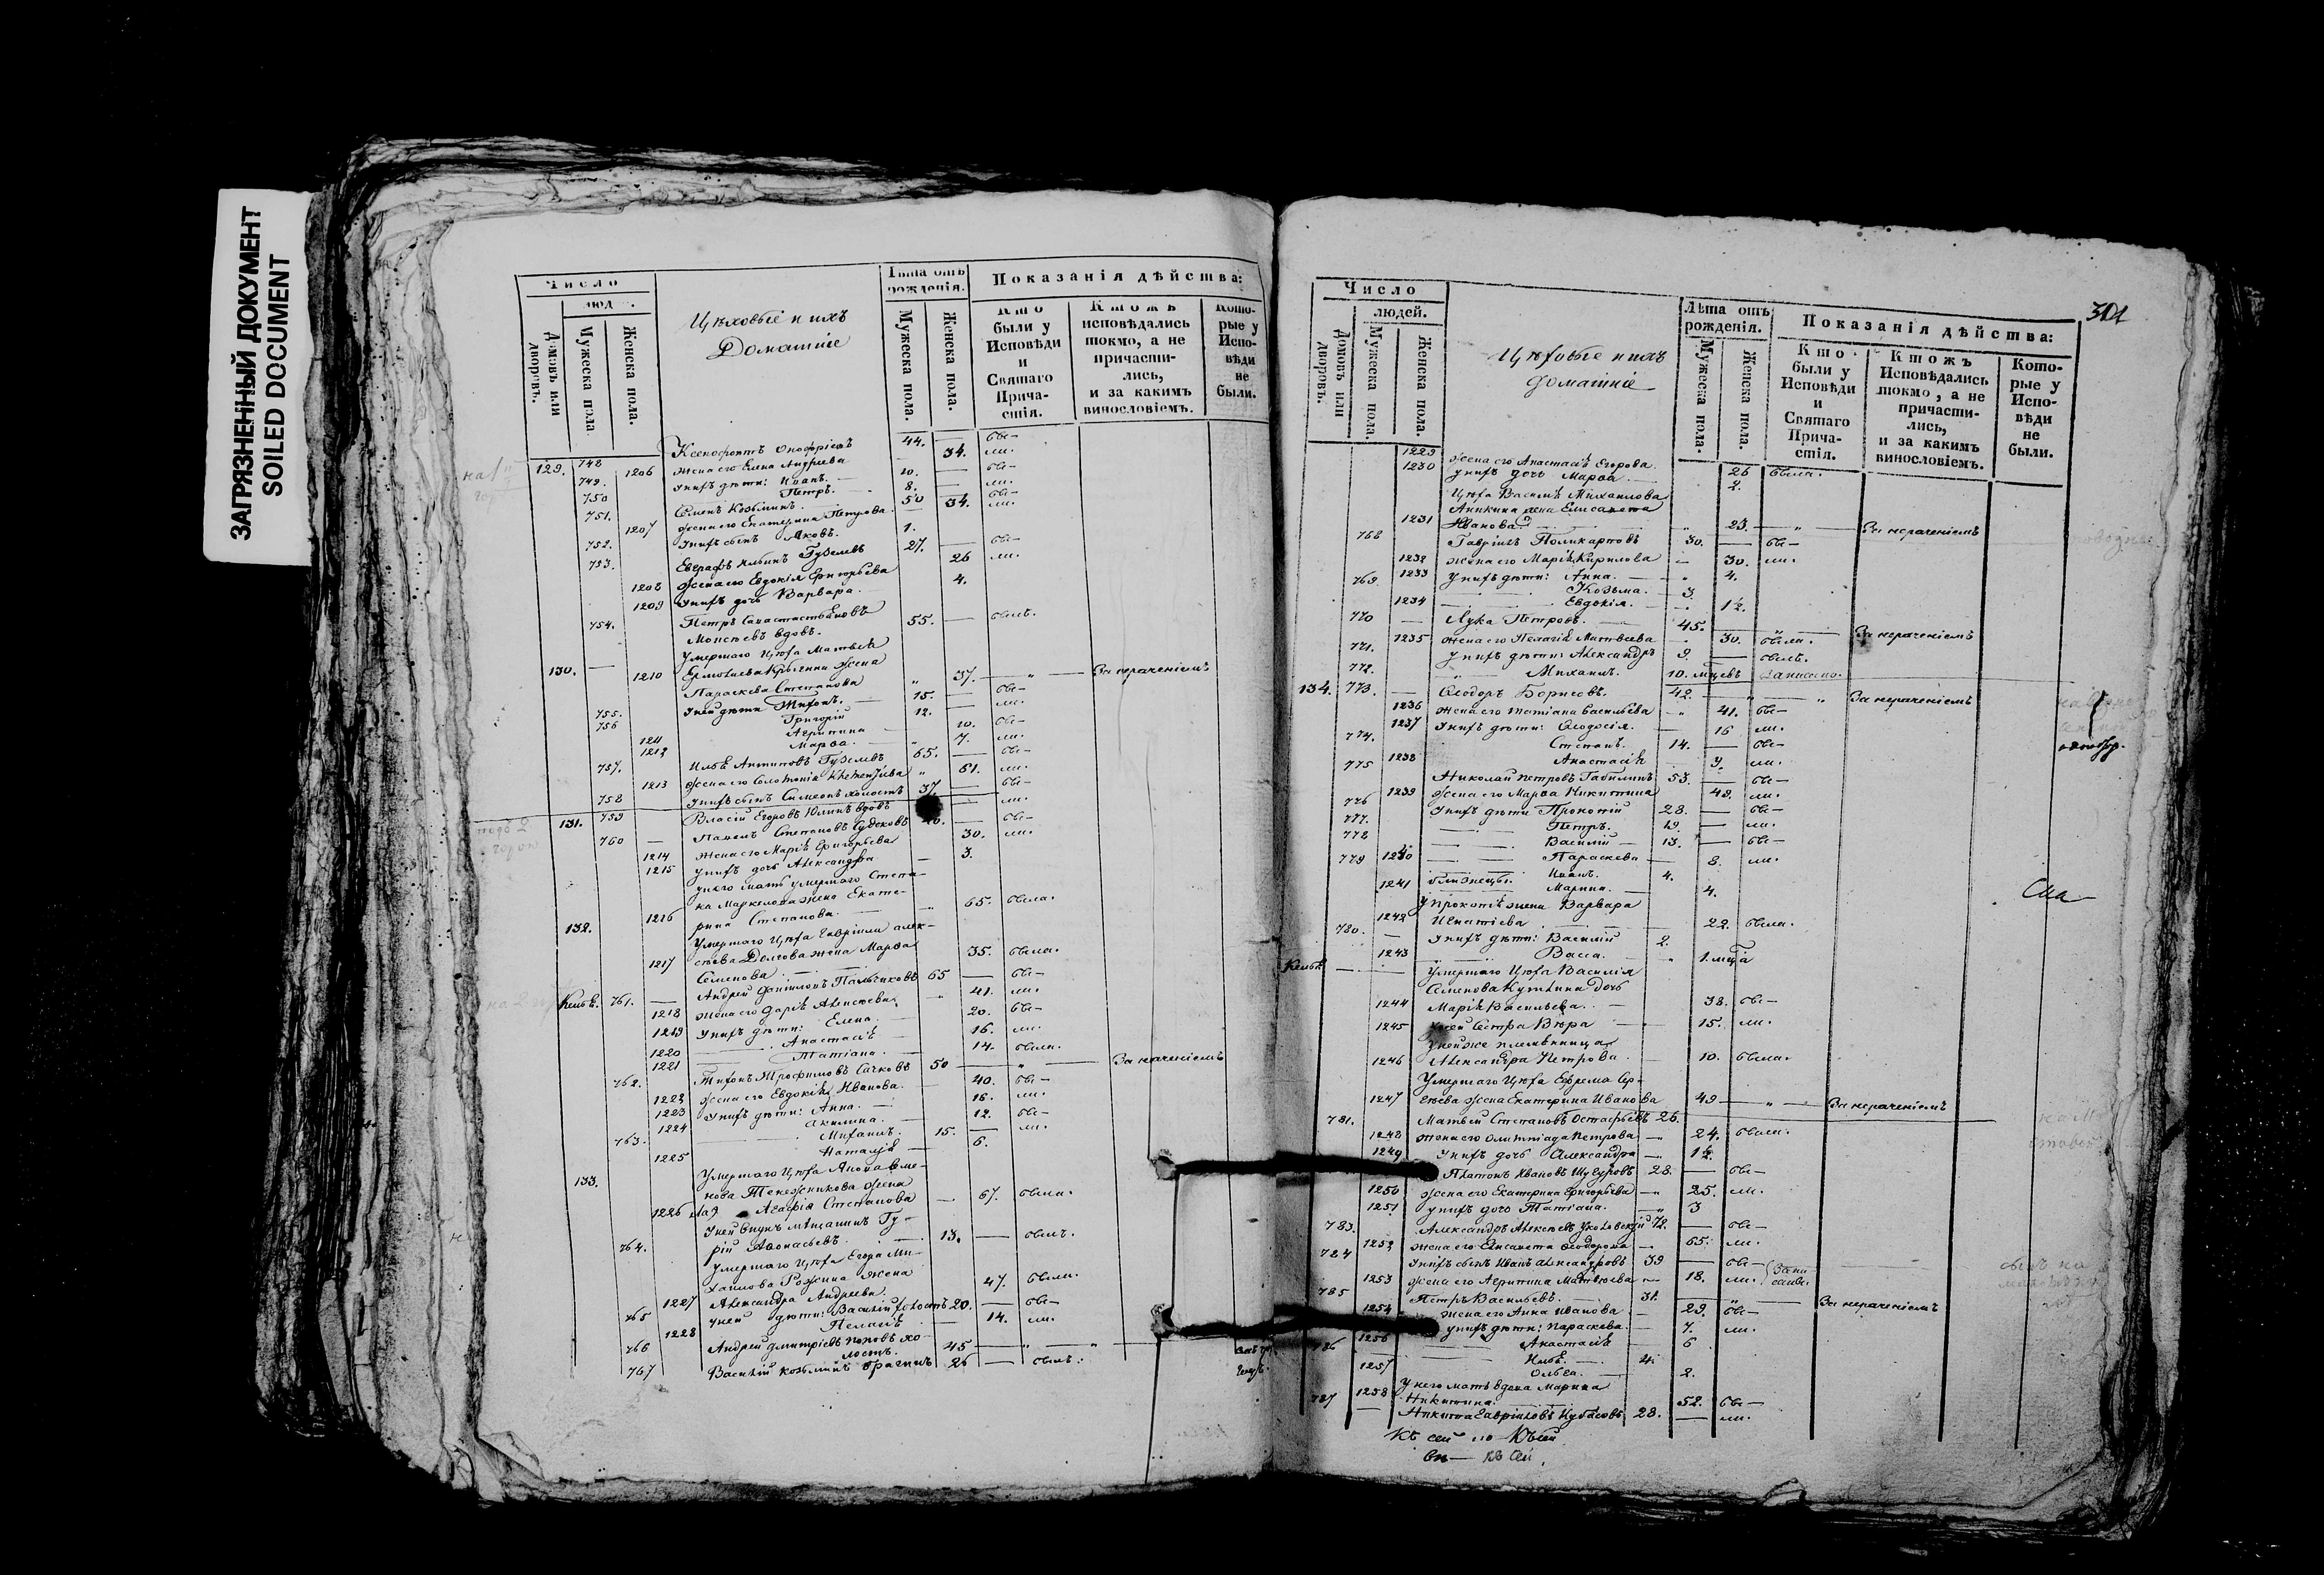 ЗАГРЯЗНЕННЫЙ ДОКУМЕНТ
SOILED DOCUMENT
Число
люд
Домовъ или дворовъ.
Мужеска пола.
Женска пола.
Цѣховые и ихъ
Домашніе
Лѣта отъ рожденія.
Мужеска пола.
Женска пола.
Показанія дѣйства:
Кто были у Исповѣди и Святаго Причастія.
Ктожъ исповѣдались токмо, а не причасти-лись, и за какимъ винословіемъ.
Кото-рые у Испо-вѣди не были.
129. 748 Ксенофонтъ Онофріевъ 44. — бы-
1206 жена его Елена Андреева — 34. ли.
749. у нихъ дѣти: Иванъ. — 10. — бы-
750 Петръ. — 8. — ли.
751. Семенъ Козьминъ. 50 — бы-
1207 жена его Екатерина Петрова — 34. ли.
752. у нихъ сынъ Яковъ. 1.
753. Евграфъ Ильинъ 27. — бы-
1208 жена его Евдокія Григорьева 26 ли.
1209 у нихъ дочь Варвара. 4.
754. Петръ
Моисеевъ вдовъ. 55. — былъ.
130. — умершаго цѣха Матвѣя
1210 жена
Параскева Степанова „ 37. — „ — За нераченіемъ
755. у ней дѣти Тихонъ. — 15. — бы-
756 Григорій 12. — ли.
1211 Агрипина — 10. бы-
1212 Марѳа. — „ 7. ли.
757. Илья Антиповъ 65. — бы-
1213 жена его Соломонія „ 61. ли.
758 у нихъ сынъ Симеонъ холостъ 37. — бы-
131. 759 Власій Егоровъ вдовъ — ли.
760 — Павелъ Степановъ — бы-
1214 жена его Марія Григорьева 30. ли.
1215 у нихъ дочь Александра — 3.
у него мать умершаго Степа-
на Маркелова жена Екате-
1216 рина Степанова. — „ 65. была.
132. умершаго цѣха Гавріила Алек-
сѣева Долгова жена Марѳа
1217 Семенова — 35. была.
Кельѣ. 761. — Андрей Даниловъ Пальчиковъ 65 — бы-
1218 жена его Дарья Алексѣева „ 41. ли.
1219 у нихъ дѣти: Елена. — 20. бы-
1220 Анастасія — 16. ли.
1221 Татіана. — 14. была.
762. Тихонъ Трофимовъ Сачковъ 50 — „ — За нераченіемъ
1222 жена его Евдокія Иванова. — 40. бы-
1223 у нихъ дѣти: Анна. — 16. ли.
1224 Акилина. — 12. бы-
763. Михаилъ. 15. — ли.
1225 Наталья — 6.
133. Умершаго цѣха
жена
1226 Агафія Степанова — 67. была.
у ней внукъ мѣщанинъ Гу-
764. рій Аѳонасьевъ. — 13. — былъ.
умершаго цѣха Егора Ми-
хаилова Рожина жена
1227 Александра Андреева. 47. была.
765 у ней дѣти: Василій холостъ 20. — бы-
1228 Пелагія — 14. ли.
766 Андрей Дмитріевъ Поповъ хо-
лостъ. 45 — „ — „
767 Василій Козьминъ Брагинъ 26 — былъ.
301
Число
людей.
Домовъ или дворовъ.
Мужеска пола.
Женска пола.
Цѣховые и ихъ
Домашніе
Лѣта отъ рожденія.
Мужеска пола.
Женска пола.
Показанія дѣйства:
Кто были у Исповѣди и Святаго Прича-стія.
Ктожъ Исповѣдались токмо, а не причасти-лись, и за какимъ винословіемъ.
Кото-рые у Испо-вѣди не были.
1229 жена его Анастасія Егорова. 26 была.
1230 у нихъ дочь Марѳа. — 2.
Цѣха Василья Михаилова
Аникина жена Елисавета
1231 Иванова „ 23. — „ — За нераченіемъ
768 Гавріилъ Поликарповъ 30. — бы-
1232 жена его Марія Кирилова — 30. ли.
1233 у нихъ дѣти: Анна. — „ 4.
769 Козьма. — 3
1234 Евдокія. — 1½.
770 — Лука Петровъ. — 45. — „ — За нераченіемъ
1235 жена его Пелагія Матвѣева — 30. была.
771. у нихъ дѣти: Александръ 9. — былъ.
772. „ Михаилъ. 10. мцевъ
134. 773. — Ѳеодоръ Борисовъ. 42. — „ За нераченіемъ
1236 жена его Татіана Васильева — „ 41. бы-
1237 у нихъ дѣти: Ѳеодосія. — 16 ли.
774. Степанъ. 14. — бы-
1238 Анастасія 9. ли.
775 Николай Петровъ 53. — бы-
1239 жена его Марѳа Никитина 49. ли.
776 у нихъ дѣти Прокопій 28. — бы-
777. Петръ. 19. — ли.
778 Василій — 13. — бы-
1240 Параскева — 8. ли.
779 близнецы: Иванъ. 4.
1241 Марина. — 4.
у Прокопія жена Варвара
1242 Игнатіева — 22. была.
780. — у нихъ дѣти: Василій 2.
1243 Васса. — „ 1. мца
Кельѣ — умершаго цѣха Василія
Семенова дочь
1244 Марія Васильева. — 38. бы-
1245 у ней сестра Вѣра — 15. ли.
у ней же племянница
1246 Александра Петрова. — 10. была.
Умершаго цѣха Ефрема Сер-
1247 гѣева жена Екатерина Иванова 49 — „ — За нераченіемъ
781. Матвей Степановъ Остафьевъ 26.
1248 жена его Олимпіада Петрова — 24. была.
1249 у нихъ дочь Александра — 1½.
Платонъ Ивановъ 28. — бы-
1250 жена его Екатерина Григорьева — 25. ли.
1251 у нихъ дочь Татіана. — 3
783. Александръ Алексѣевъ 72. — бы-
1252 жена его Елисавета Ѳеодорова — 65. ли.
784 у нихъ сынъ Иванъ Александровъ 39 — бы-
1253 жена его Агрипина Матвѣева — 18. ли.
785 Петръ Васильевъ. — 31. — „ — За нераченіемъ
1254 жена его Анна Иванова — 29. бы-
у нихъ дѣти: Параскева. — 7. ли.
1256 Анастасія — 6
786 Илья. — 4.
1257 Ольга. — 2.
у него мать вдова Марина
1258 Никитина. 52. бы-
787 — Никита Гавріиловъ 28. — ли.